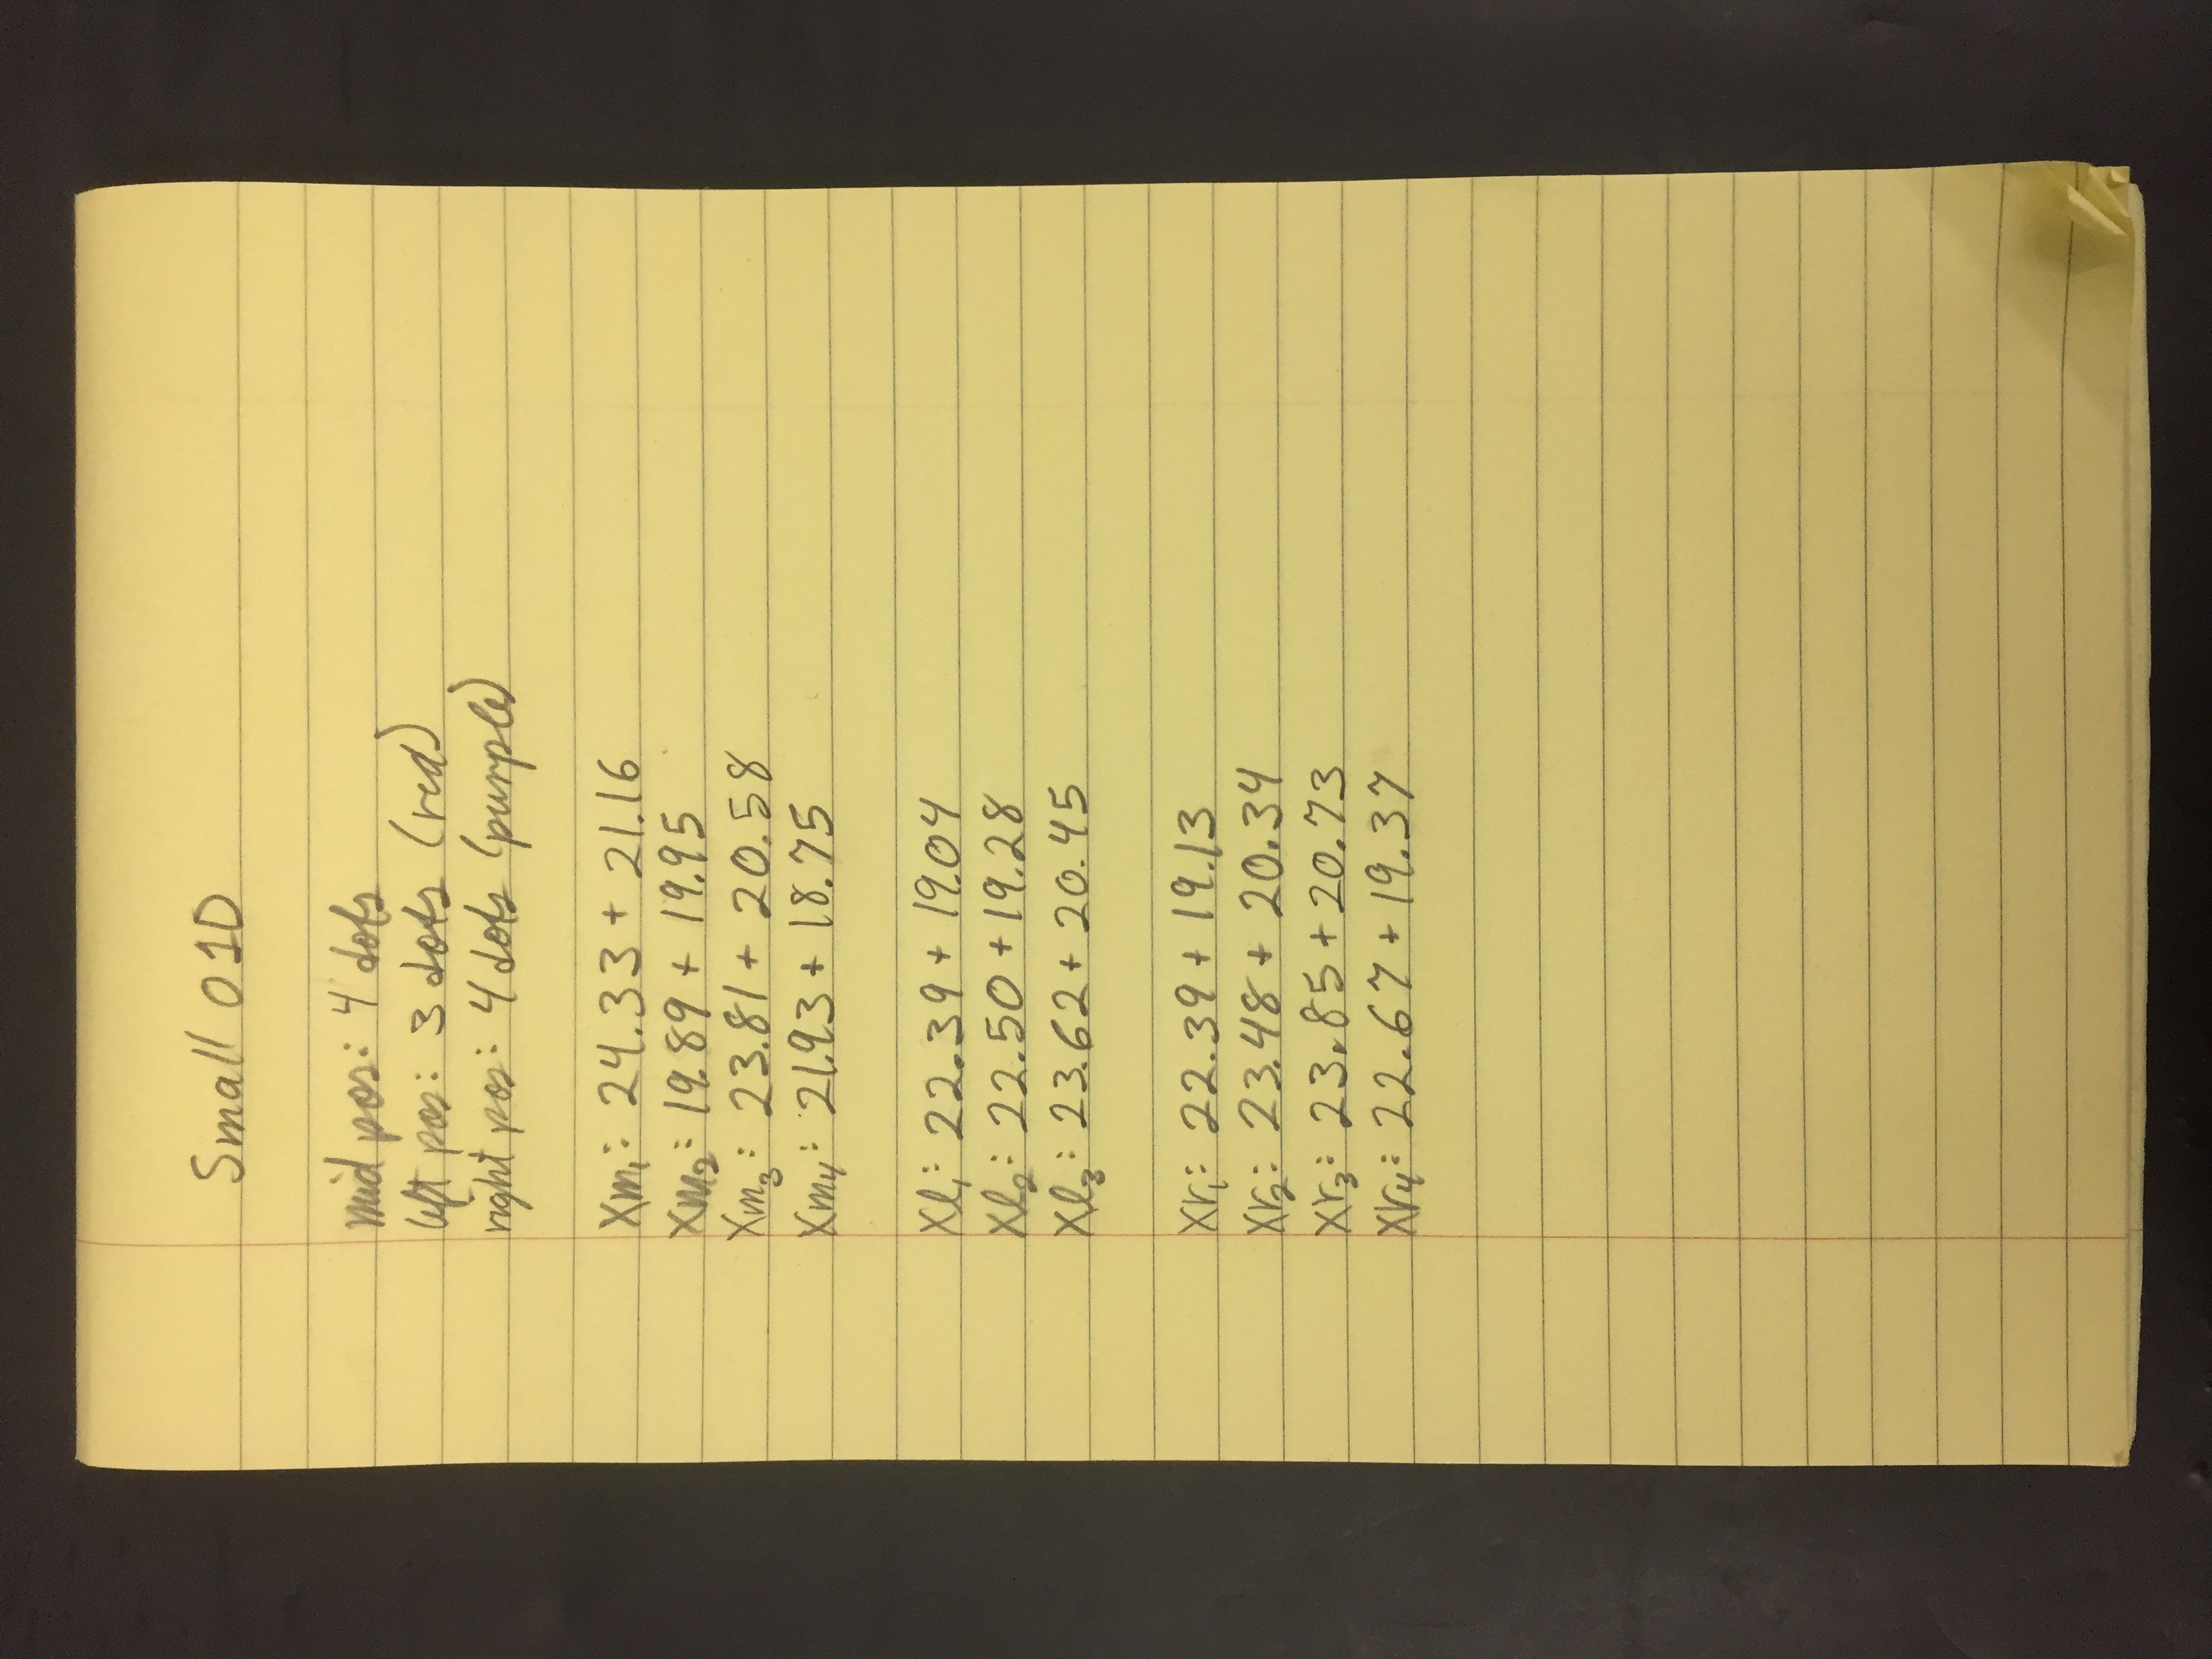 Small 01D
mid pos: 4 dots
left pos: 3 dots (red)
right pos: 4 dots (purple)
Xm₁: 24.33 + 21.16
Xm₂: 19.89 + 19.95
Xm₃: 23.81 + 20.58
Xm₄: 21.93 + 18.75
Xl₁: 22.39 + 19.04
Xl₂: 22.50 + 19.28
Xl₃: 23.62 + 20.45
Xr₁: 22.39 + 19.13
Xr₂: 23.48 + 20.34
Xr₃: 23.85 + 20.73
Xr₄: 22.67 + 19.37